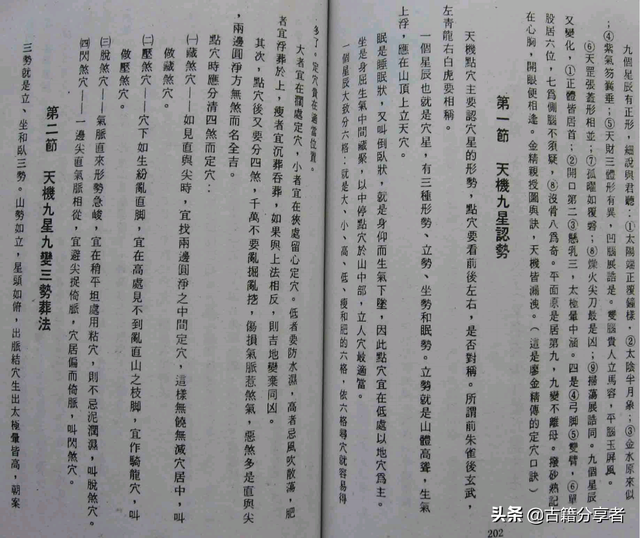 九個星辰有正形，細說與君聽：①太陽端正覆鐘樣，②太陰半月象；③金水原來似
；④紫氣勿異垂；⑤天財三體形有異，凹腦展誥是。雙腦貴人立馬容，平腦玉屏風。
⑥天罡張蓋形相並；⑦孤曜如覆磬；⑧燥火尖刀最是凶；⑨掃蕩展誥同。九個星辰
又變化，①正體皆居首；②開口第二③懸乳三，太極暈中涵。四是④弓脚⑤雙臂，⑥單
股居六位，七爲側腦不須疑，⑧沒骨八爲奇。平面原是居第九，九變不離母。撥砂熟記
在心胸，開眼便相逢。金精親授圖與訣，天機皆漏洩。（這是廖金精傳的定穴口訣）
第一節　天機九星認勢
天機點穴主要認穴星的形勢，點穴要看前後左右，是否對稱。所謂前朱雀後玄武，
左青龍右白虎要相稱。
一個星辰也就是穴星，有三種形勢、立勢、坐勢和眠勢。立勢就是山體高聳，生氣
上浮，應在山頂上立天穴。
眠是睡眠狀，又叫倒臥狀，就是身仰而生氣下墜，因此點穴宜在低處以地穴爲主。
坐是身屈生氣中間藏聚，以中停點穴於山中部，立人穴最適當。
一個星辰大致分六格：就是大、小、高、低、瘦和肥的六格，依六格尋穴就容易得
202
多了。定穴貴在適當位置。
大者宜在濶處定穴，小者宜在狹處留心定穴。低者要防水濕，高者忌風吹散蕩，肥
者宜浮葬於上，瘦者宜沉葬吞葬，如果與上法相反，則吉地變棄同凶。
其次，點穴後又要分四煞，千萬不要亂掘亂挖，傷損氣脈惹煞氣，惡煞多是直與尖
，兩邊圓淨方無煞而名全吉。
點穴時應分清四煞而定穴：
㈠藏煞穴——如見直與尖時，宜找兩邊圓淨之中間定穴，這樣無饒無減穴居中，叫
做藏煞穴。
㈡壓煞穴——穴下如生紛亂直脚，宜在高處見不到亂直山之枝脚，宜作騎龍穴，叫
做壓煞穴。
㈢脫煞穴——氣脈直來形勢急峻，宜在稍平坦處用粘穴，則不忌泥潤濕，叫脫煞穴。
㈣閃煞穴——一邊尖直氣脈相從，宜避尖捉倚脈，穴居偏而倚脈，叫閃煞穴。
第二節　天機九星九變三勢葬法
三勢就是立、坐和臥三勢。山勢如立，星頭如俯，出脈結穴生出太極暈皆高，朝案
头条 @古籍分享者